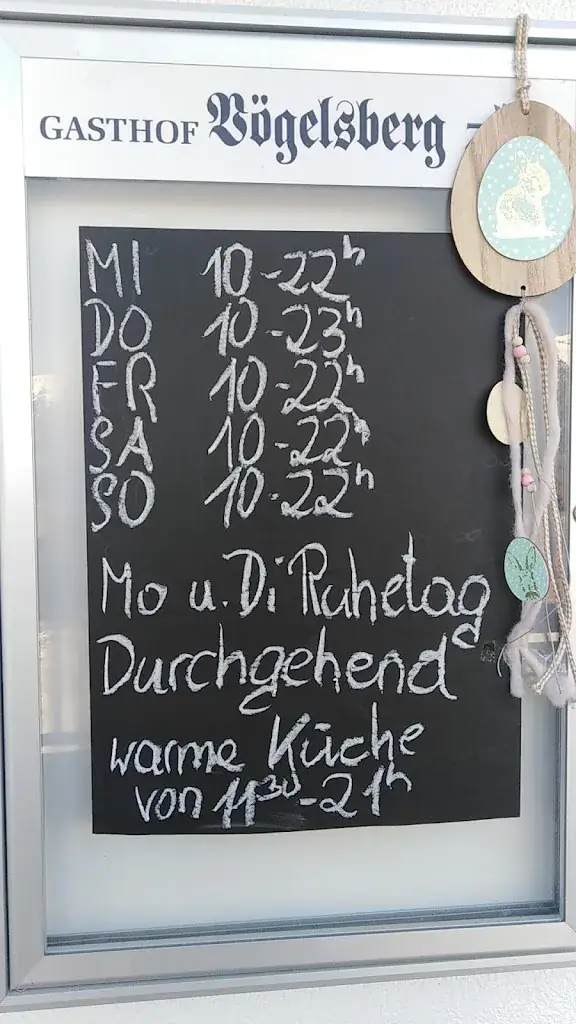 GASTHOF Vögelsberg
MI 10-22h
DO 10-23h
FR 10-22h
SA 10-22h
SO 10-22h
Mo u. Di Ruhetag
Durchgehend
warme Küche
von 11³⁰-21h